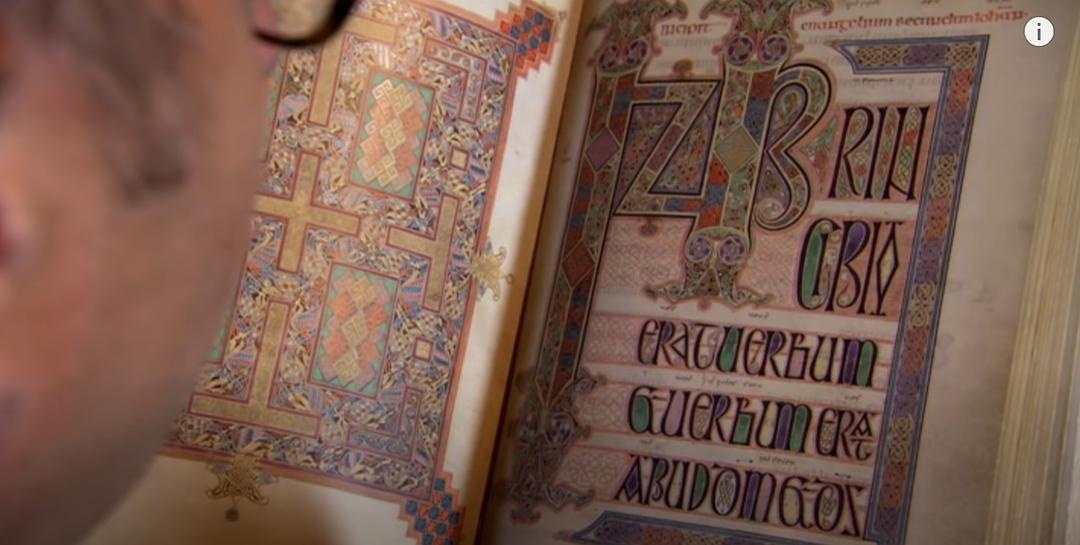 incipit euangelium secundum iohan
INP RIN
CIPIO
ERATUERBUM
ETUERBUM ERAT
APUD DM ET DS